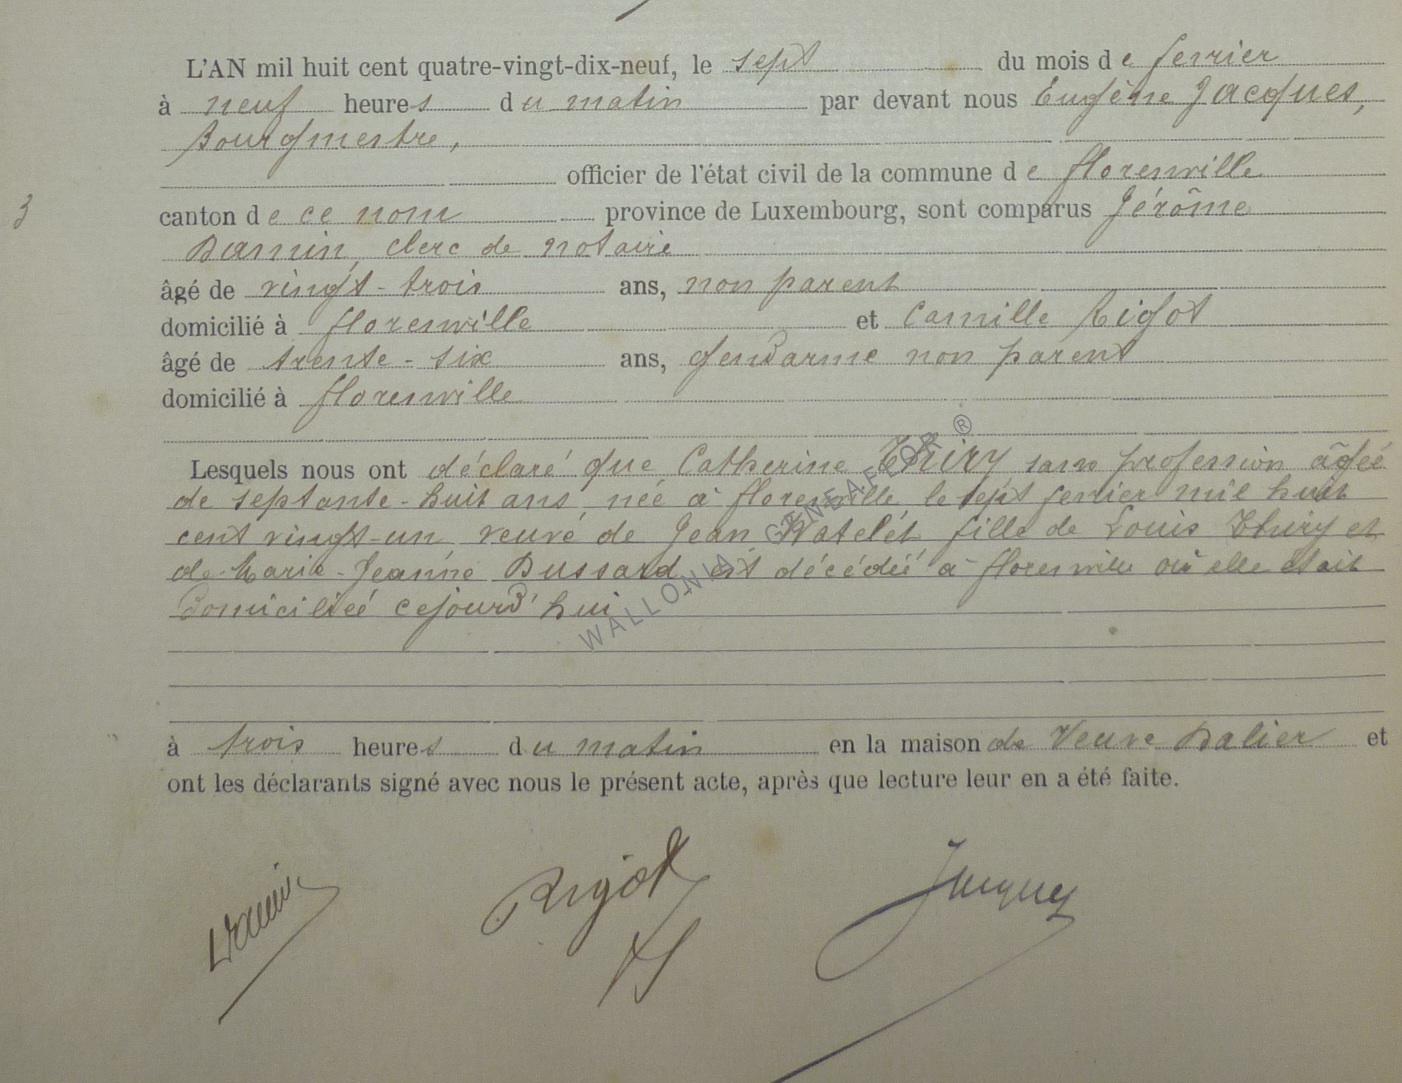 L'AN mil huit cent quatre-vingt-dix-neuf, le sept du mois de fevrier
à neuf heures du matin par devant nous Eugène Jacques,
Bourgmestre,
officier de l'état civil de la commune de florenville
3
canton de ce nom province de Luxembourg, sont comparus Jérôme
Damin, clerc de notaire
âgé de vingt-trois ans, non parent
domicilié à florenville et Camille Rigot
âgé de trente-six ans, gendarme non parent
domicilié à florenville
Lesquels nous ont déclaré que Catherine Thiry sans profession âgée
de septante-huit ans, née à florenville le sept fevrier mil huit
cent vingt-un, veuve de Jean Watelet fille de Louis Thiry et
de Marie-Jeanne Dussard est décédée à florenville où elle était
domiciliée cejourd'hui
à trois heures du matin en la maison de Veuve Dalier et
ont les déclarants signé avec nous le présent acte, après que lecture leur en a été faite.
Damin Rigot Jacques
WALLONIA GENEAFLOR ®